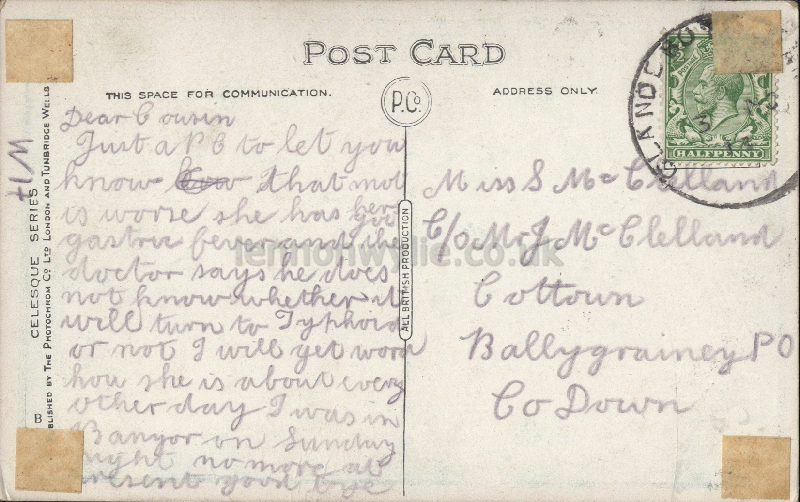 POST CARD
THIS SPACE FOR COMMUNICATION.
P.Co.
ADDRESS ONLY.
HALFPENNY
Dear Cousin
Just a P C to let you
know that mot
is worse she has her got
gastric fever and the
doctor says he does
not know whether it
will turn to Typhoid
or not I will get word
how she is about every
other day I was in
Bangor on Sunday
night no more at
present good bye
Miss S McClelland
C/o Mr J McClelland
Cottown
Ballygrainey P O
Co Down
ALL BRITISH PRODUCTION
CELESQUE SERIES
PUBLISHED BY THE PHOTOCHROM CO LTD LONDON AND TUNBRIDGE WELLS
B
lennonwylie.co.uk